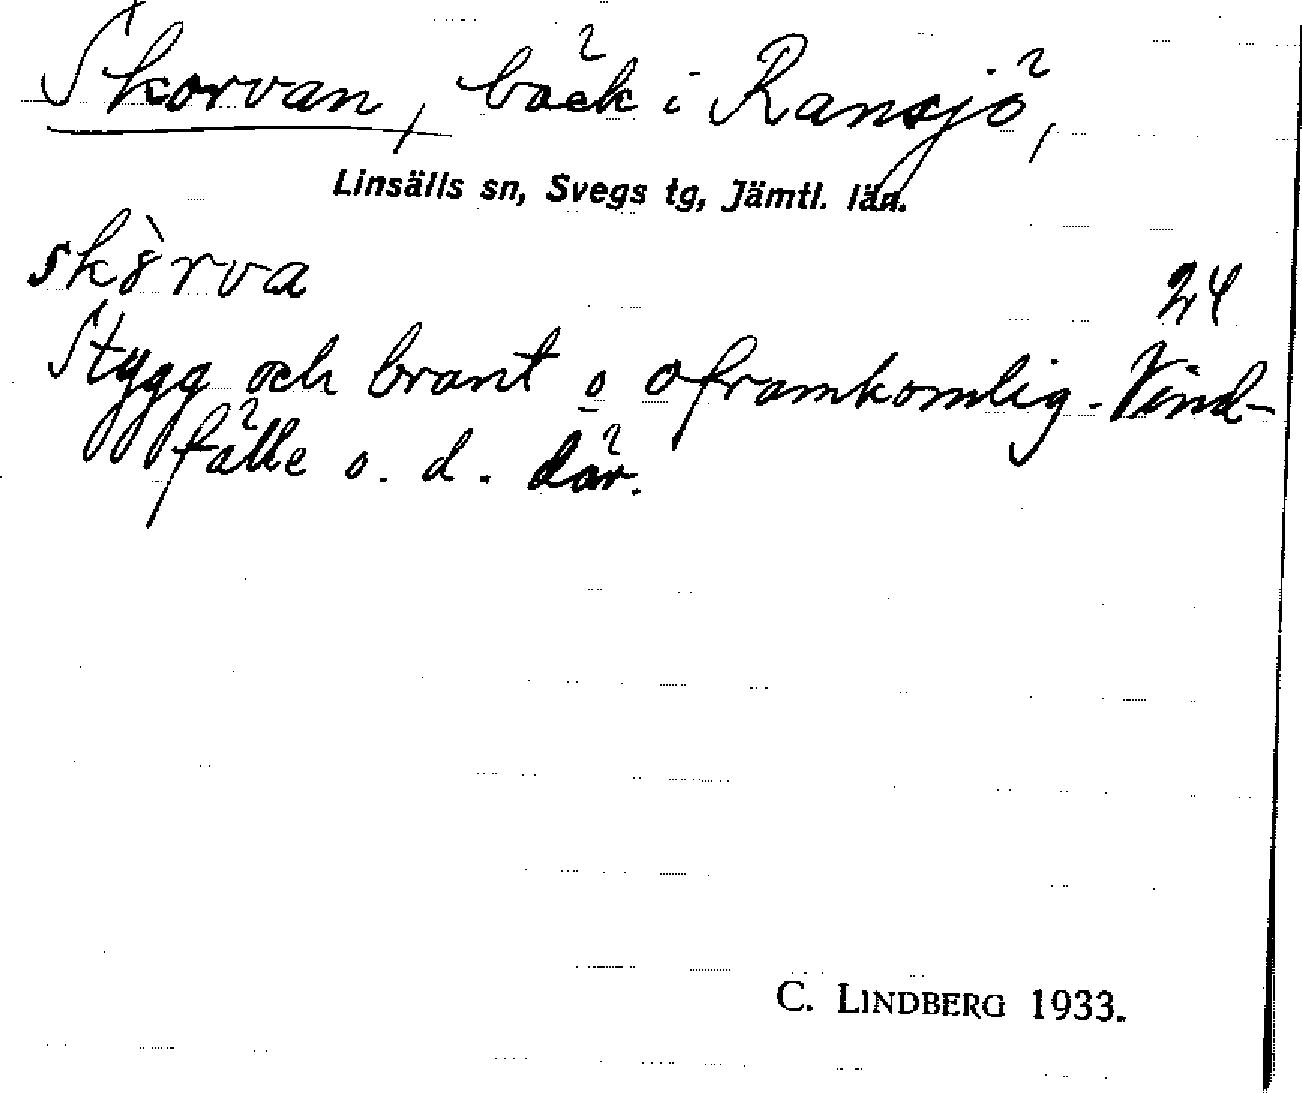 Skorvan, bäck i Ransjö,
Linsälls sn, Svegs tg, Jämtl. län.
skòrva
24
Stygg och brant o oframkomlig. Vind-
fälle o. d. där.
C. LINDBERG 1933.